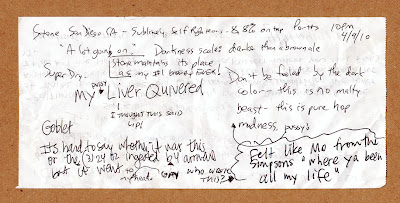 Stone San Diego CA - Sublimely Self Righteous - 8.8% on tap Porter's 10pm
4/9/10
"A lot going on." Darkness scale: darker than a brown ale
Super Dry. Stone maintains its place
as my #1 brewery EVER!
My poor Liver Quivered
I THOUGHT THIS SAID
LIP!
Don't be fooled by the dark
color - this is no malty
beast - this is pure hop
madness, pussys!
Goblet
It's hard to say whether it was this
or the 3(?)24 oz ingested b4 arrival
but it went to
my head
GOD WHO WROTE
THIS?
Felt like Mo from the
Simpsons "where ya been
all my life"